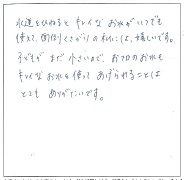 水道をひねると キレイな お水が いつでも
使えて、面倒くさがりの私には、嬉しいです。
子どもが まだ 小さいので、お風呂のお水も
キレイな お水を使って あげられることは
とても ありがたいです。